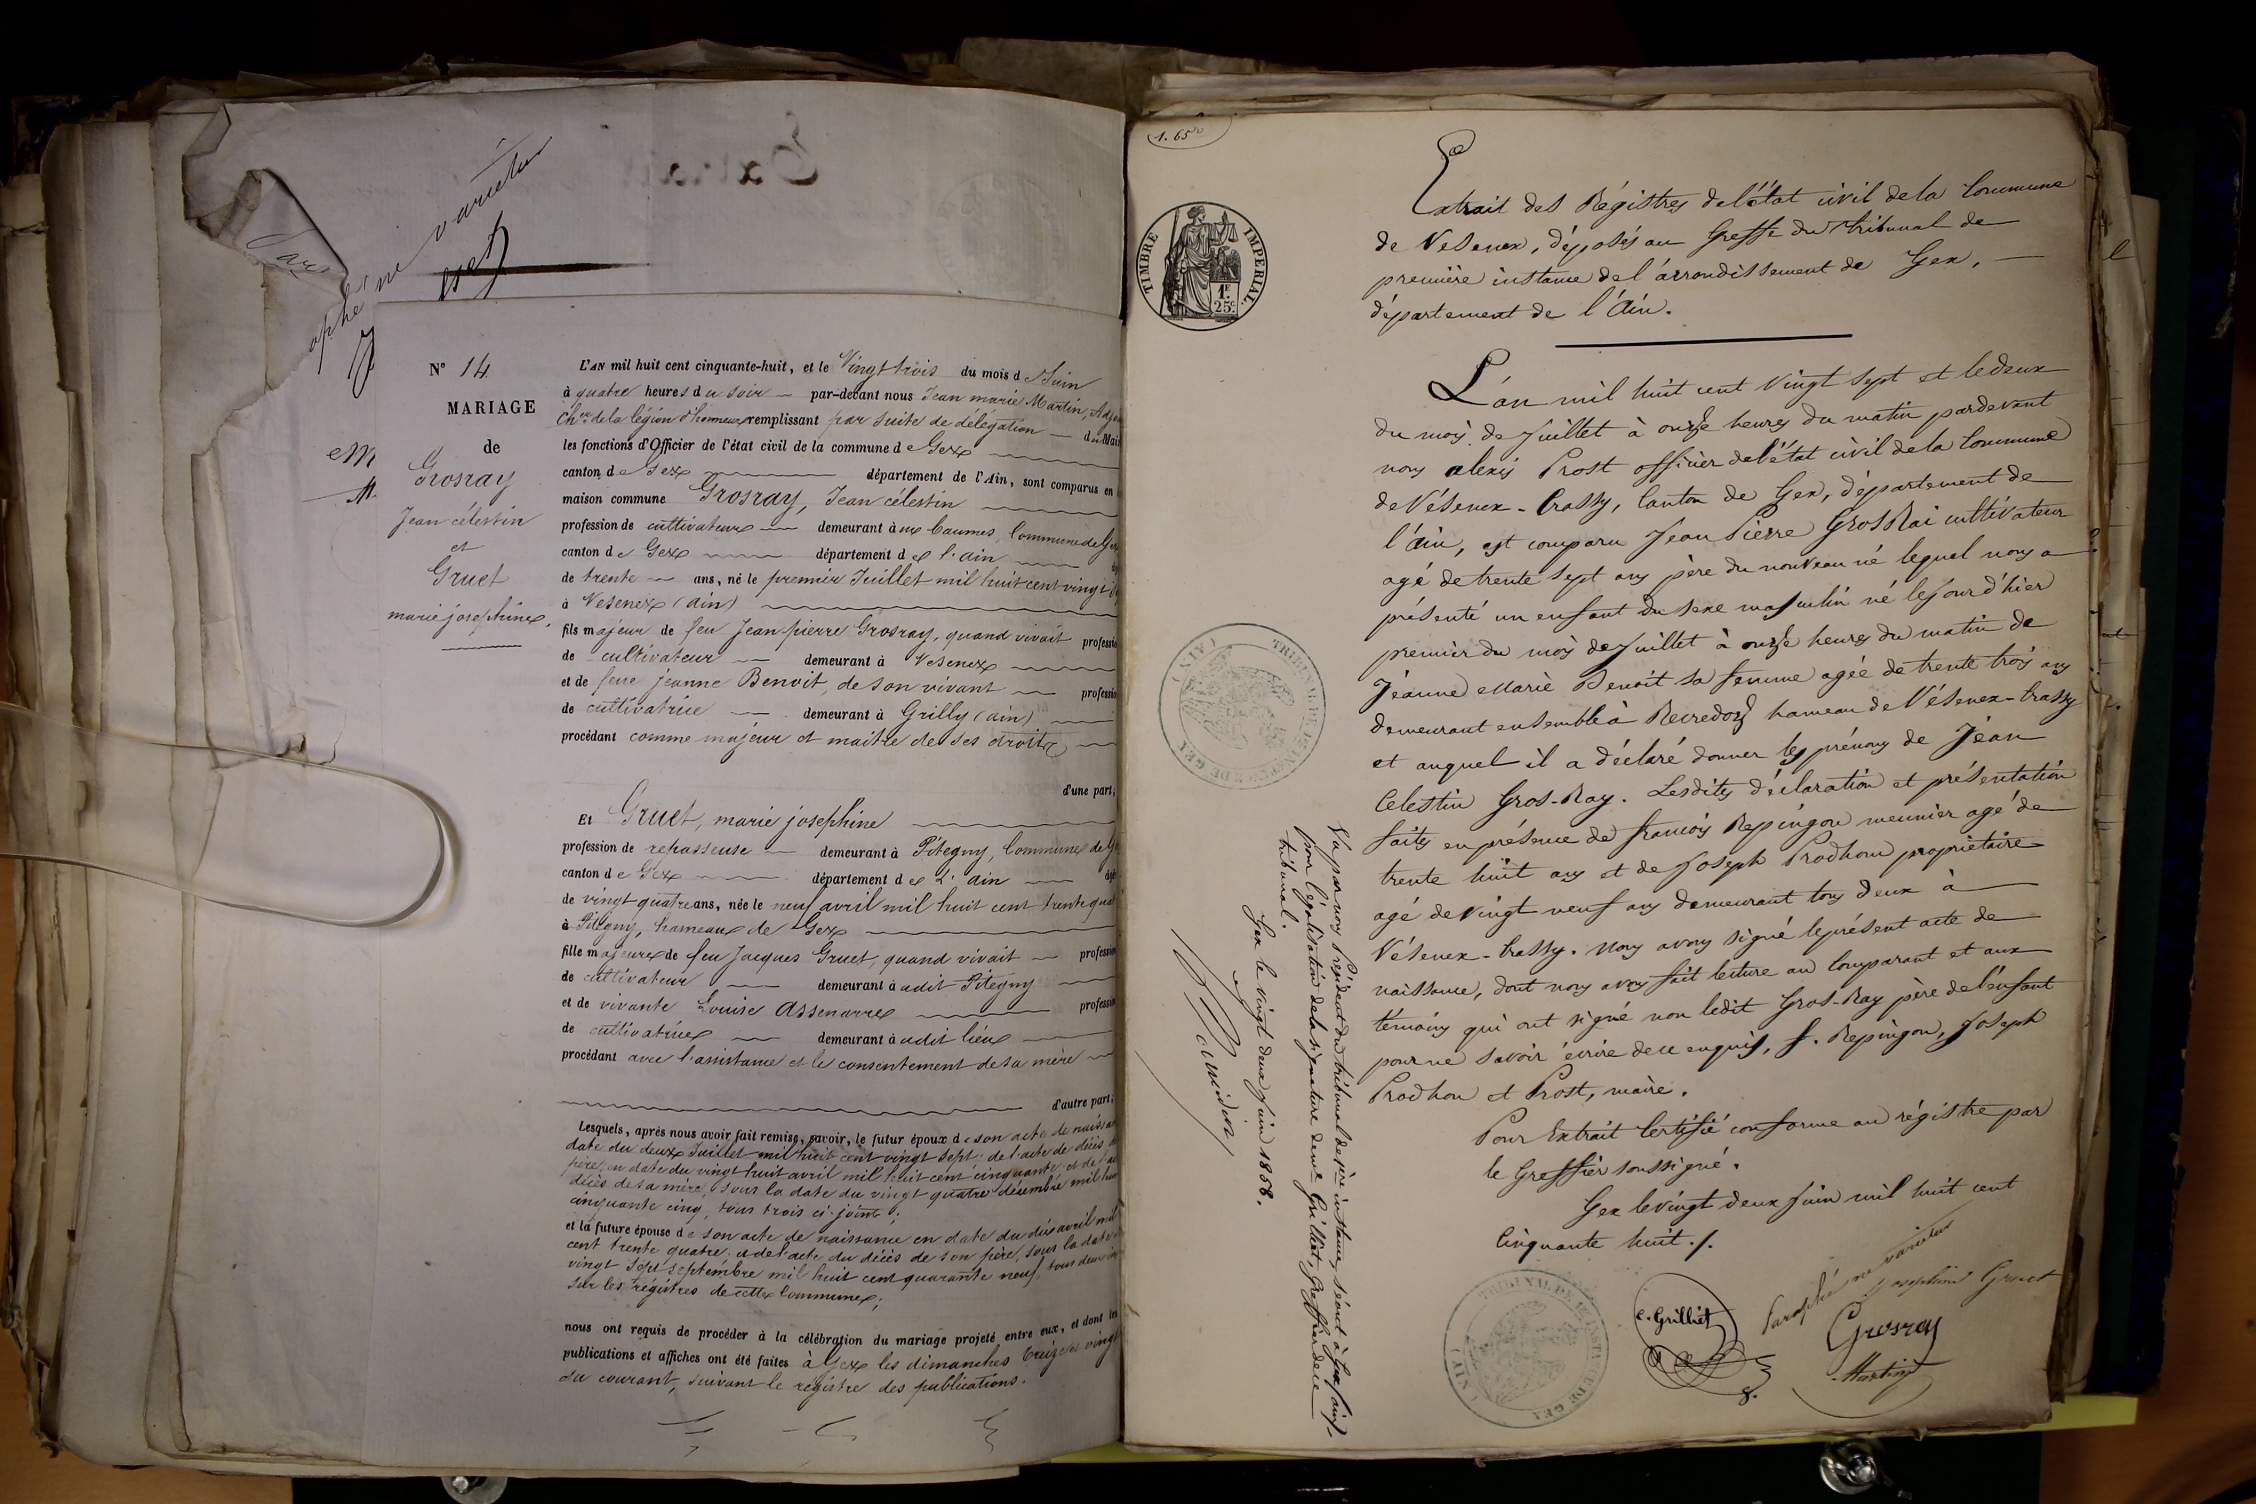 ne varietur
Nº 14
MARIAGE
de
Grosray
Jean célestin
et
Gruet
marie joséphine.
L'AN mil huit cent cinquante-huit, et le Vingt trois du mois de Juin
à quatre heures du soir par-devant nous Jean marie Martin, Adjoin
Cher de la légion d'honneur remplissant par suite de délégation du Mair
les fonctions d'Officier de l'état civil de la commune de Gex
canton de Gex département de l'Ain, sont comparus en
maison commune Grosray, Jean célestin
profession de cultivateur demeurant à aux Baumes, Commune de Gex
canton de Gex département de l'ain
de trente ans, né le premier Juillet mil huit cent vingt
à Vesenex (ain)
fils majeur de feu Jean pierre Grosray, quand vivait professio
de cultivateur demeurant à Vesenex
et de feue jeanne Benoit, de son vivant profession
de cultivatrice demeurant à Grilly (ain)
procédant comme majeur et maître de ses droits
d'une part,
Et Gruet, marie joséphine
profession de repasseuse demeurant à Pitegny, Commune de
canton de Gex département de L'ain
de vingt quatre ans, née le neuf avril mil huit cent trente qua
à Pitegny, hameau de Gex
fille majeure de feu Jacques Gruet, quand vivait profession
de cultivateur demeurant à udit Pitegny
et de vivante Louise Assenarre profession
de cultivatrice demeurant à udit lieu
procédant avec l'assistance et le consentement de sa mère
d'autre part;
Lesquels, après nous avoir fait remise, savoir, le futur époux de son acte de naissa
date du deux Juillet mil huit cent vingt sept; de l'acte de décès
père, en date du vingt huit avril mil huit cent cinquante; et de
décès de sa mère, sous la date du vingt quatre décembre mil hui
cinquante cinq, tous trois ci-joints;
et la future épouse de son acte de naissance en date du dix avril mil
cent trente quatre; et de l'acte du décès de son père, sous la date
vingt sept septembre mil huit cent quarante neuf, tous deux
sur les régistres de cette Commune;
nous ont requis de procéder à la célébration du mariage projeté entre eux, et dont les
publications et affiches ont été faites à Gex les dimanches treize et vingt
du courant, suivant le régistre des publications.
1.65
TIMBRE IMPERIAL.
1F.
25c.
Extrait des Régistres de l'état civil de la Commune
de Vesenex, déposés au Greffe du tribunal de
première instance de l'arrondissement de Gex,
département de l'Ain.
L'an mil huit cent vingt sept et le deux
du mois de Juillet à onze heures du matin pardevant
nous alexis Prost officier de l'état civil de la Commune
de Vésenex-Crassy, Canton de Gex, département de
l'ain, est comparu Jean Pierre GrosRai cultivateur
agé de trente sept ans père du nouveau né lequel nous a
présenté un enfant du sexe masculin né le jour d'hier
premier du mois de Juillet à onze heures du matin de
Jéanne Marie Benoit sa femme agée de trente trois ans
demeurant ensemble à hameau de Vésenex-Crassy
et auquel il a déclaré donner les prénoms de Jéan
Celestin Gros-Ray. Lesdites déclaration et présentation
faites en présence de françois Repingon meunier agé de
trente huit ans et de Joseph Prodhon propriétaire
agé de vingt neuf ans demeurant tous deux à
Vésenex-Crassy. Nous avons signé le présent acte de
naissance, dont nous avons fait lecture au Comparant et aux
témoins qui ont signé non ledit Gros-Ray père de l'enfant
pour ne savoir écrire de ce enquis, f. Repingon, Joseph
Prodhon et Prost, maire.
Pour Extrait Certifié conforme au régistre par
le Greffier soussigné.
Gex le vingt deux Juin mil huit cent
Cinquante huit./.
TRIBUNAL DE 1RE INSTANCE DE GEX (AIN)
C. Grilliet
Paraphé ne varietur
Josephine Gruet
Grosray
Martin
TRIBUNAL DE 1RE INSTANCE DE GEX (AIN)
Vu par nous Président du tribunal de 1ère instance séant à Gex (ain)
pour légalisation de la signature de Me Grilliet, Greffier de ce
tribunal.
Gex le vingt deux Juin 1858.